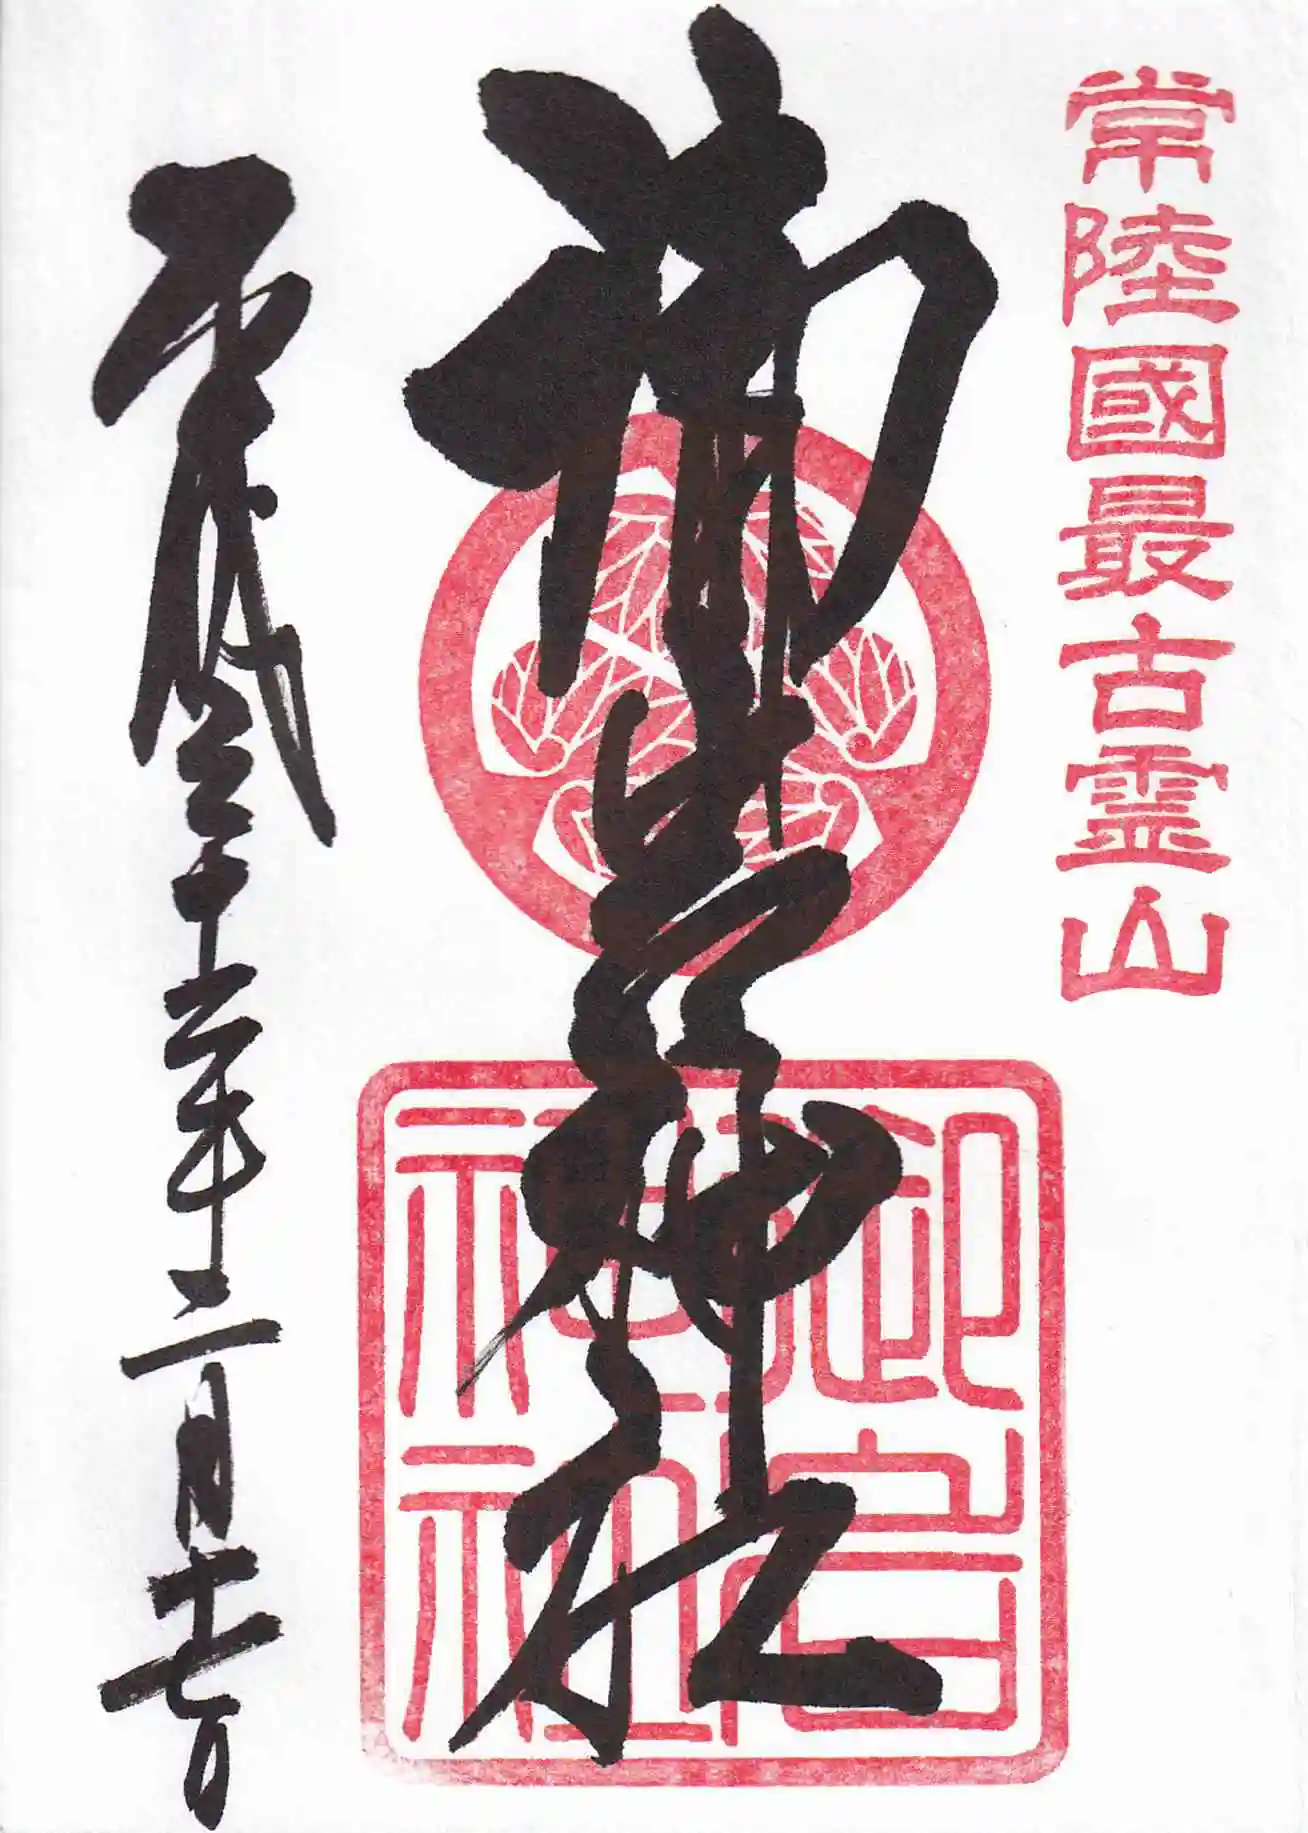 常陸國最古霊山
御岩神社
御岩神社
平成三十一年二月十七日